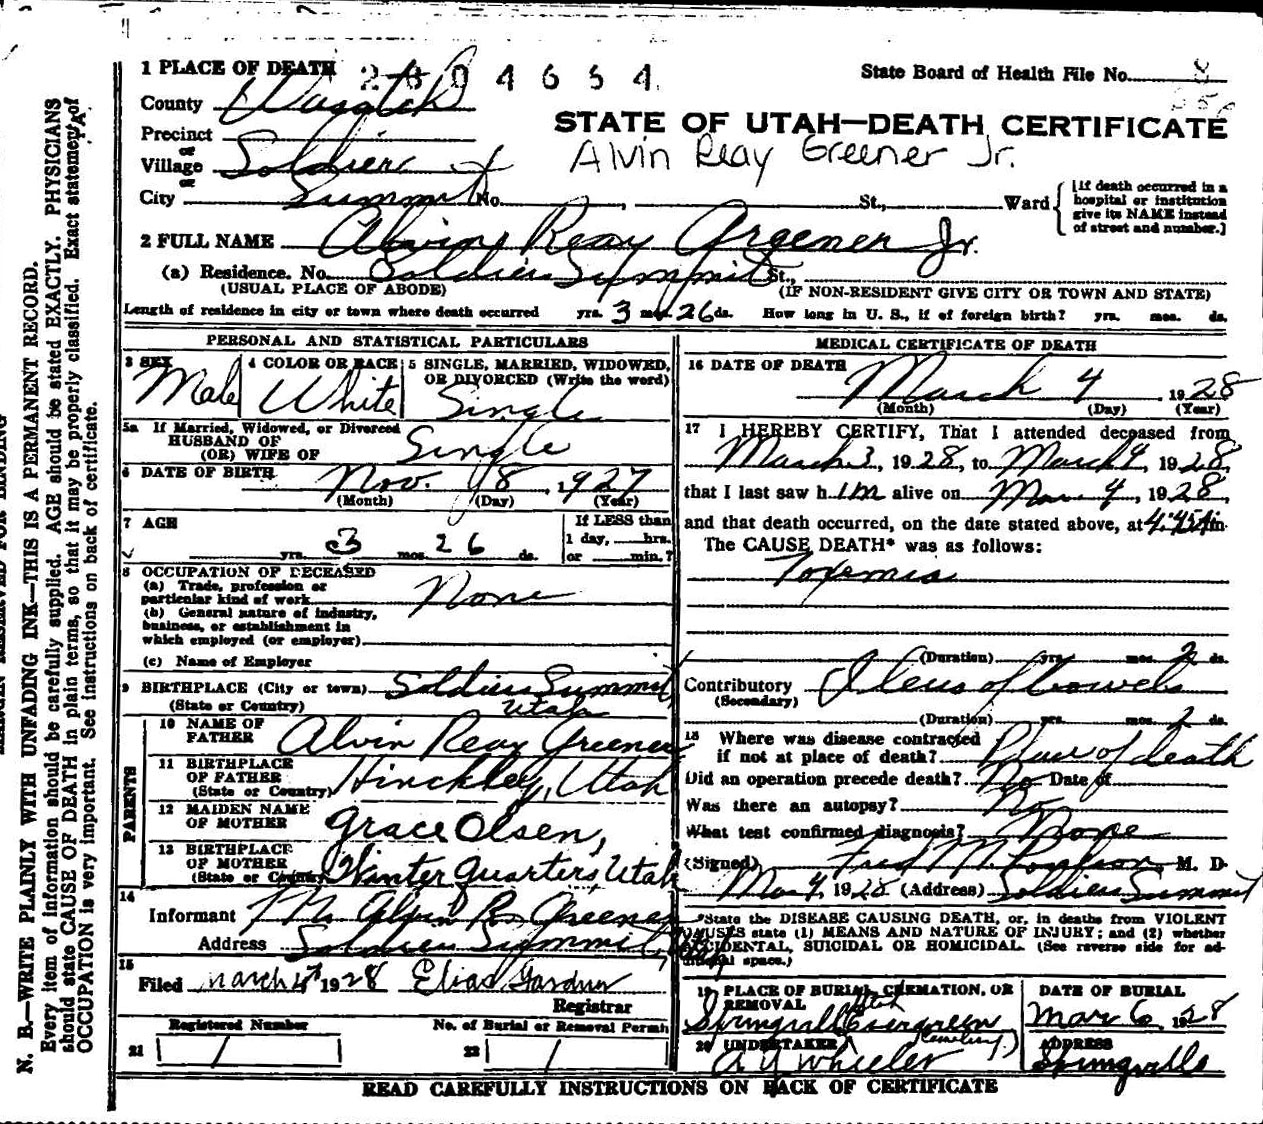 1 PLACE OF DEATH 2804654 State Board of Health File No. 8
County Wasatch
STATE OF UTAH—DEATH CERTIFICATE
Precinct
or
Village Soldier
Alvin Reay Greener Jr.
or
City Summit No. , St., Ward [If death occurred in a hospital or institution give its NAME instead of street and number.]
2 FULL NAME Alvin Reay Greener Jr.
(a) Residence. No. Soldier Summit St.,
(USUAL PLACE OF ABODE) (IF NON-RESIDENT GIVE CITY OR TOWN AND STATE)
Length of residence in city or town where death occurred yrs. 3 mos. 26 ds. How long in U. S., if of foreign birth? yrs. mos. ds.
PERSONAL AND STATISTICAL PARTICULARS
3 SEX 4 COLOR OR RACE 5 SINGLE, MARRIED, WIDOWED,
OR DIVORCED (Write the word)
Male White Single
5a If Married, Widowed, or Divorced
HUSBAND OF
(OR) WIFE OF Single
6 DATE OF BIRTH Nov. 8, 1927
(Month) (Day) (Year)
7 AGE If LESS than
1 day, hrs.
yrs. 3 mos. 26 ds. or min.?
8 OCCUPATION OF DECEASED
(a) Trade, profession or
particular kind of work None
(b) General nature of industry,
business, or establishment in
which employed (or employer)
(c) Name of Employer
9 BIRTHPLACE (City or town) Soldier Summit,
(State or Country) Utah
PARENTS
10 NAME OF
FATHER Alvin Reay Greener
11 BIRTHPLACE
OF FATHER
(State or Country) Hinckley, Utah
12 MAIDEN NAME
OF MOTHER Grace Olsen,
13 BIRTHPLACE
OF MOTHER
(State or Country) Winter Quarters, Utah
14
Informant Mr. Alvin R. Greener
Address Soldier Summit, Utah
15
Filed March 4th 1928 Elias Gardner
Registrar
Registered Number No. of Burial or Removal Permit
21 22
MEDICAL CERTIFICATE OF DEATH
16 DATE OF DEATH
March 4 1928
(Month) (Day) (Year)
17 I HEREBY CERTIFY, That I attended deceased from
March 3, 1928, to March 4, 1928,
that I last saw him alive on Mar. 4, 1928,
and that death occurred, on the date stated above, at 4:45 A m.
The CAUSE DEATH* was as follows:
Toxemia
(Duration) yrs. mos. 2 ds.
Contributory Ileus of bowels
(Secondary)
(Duration) yrs. mos. 2 ds.
18 Where was disease contracted
if not at place of death? Place of death
Did an operation precede death? No Date of
Was there an autopsy? No
What test confirmed diagnosis? None
(Signed) Fred M. M. D.
Mar 4, 1928 (Address) Soldier Summit
*State the DISEASE CAUSING DEATH, or, in deaths from VIOLENT
CAUSES state (1) MEANS AND NATURE OF INJURY; and (2) whether
ACCIDENTAL, SUICIDAL OR HOMICIDAL. (See reverse side for ad-
ditional space.)
19 PLACE OF BURIAL, CREMATION, OR
REMOVAL Utah
Springville Evergreen
(Cemetery.)
DATE OF BURIAL
Mar 6, 1928
20 UNDERTAKER
A Y Wheeler
ADDRESS
Springville
READ CAREFULLY INSTRUCTIONS ON BACK OF CERTIFICATE
N. B.—WRITE PLAINLY WITH UNFADING INK—THIS IS A PERMANENT RECORD.
Every item of information should be carefully supplied. AGE should be stated EXACTLY. PHYSICIANS
should state CAUSE OF DEATH in plain terms, so that it may be properly classified. Exact statement of
OCCUPATION is very important. See instructions on back of certificate.